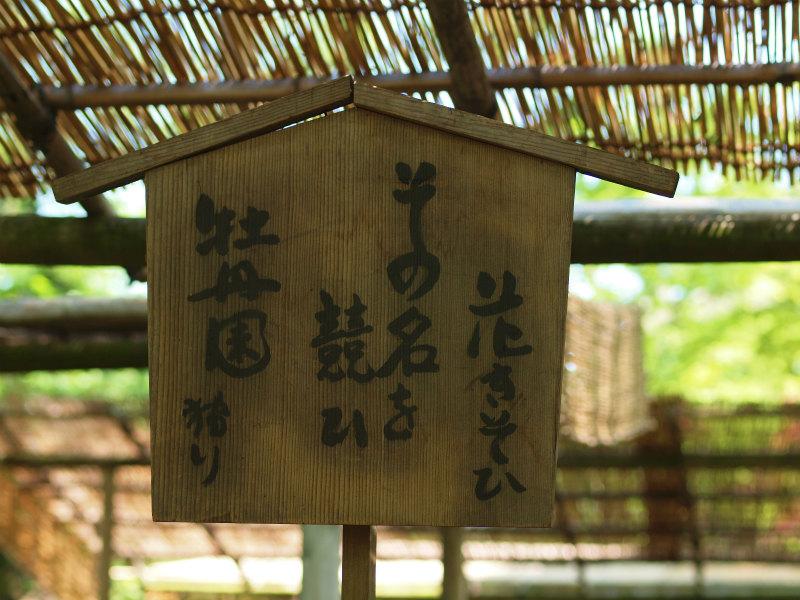 花きそひ
その名を
競ひ
牡丹園